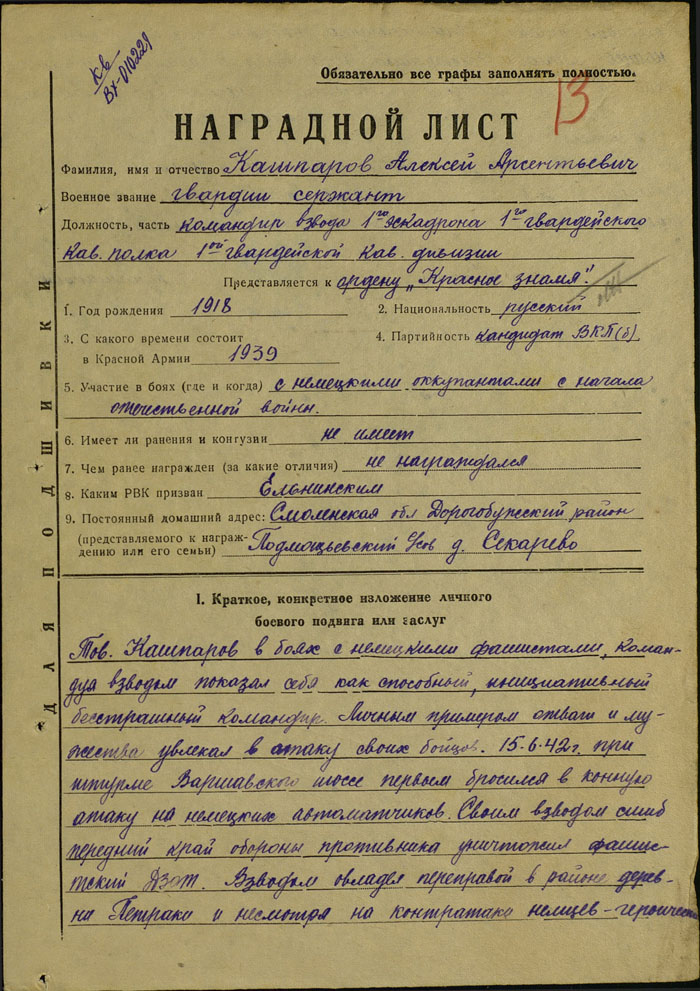 кв
Вх-010229
Обязательно все графы заполнять полностью.
13
НАГРАДНОЙ ЛИСТ
Фамилия, имя и отчество Кашпаров Алексей Арсентьевич
Военное звание гвардии сержант
Должность, часть командир взвода 1го эскадрона 1го гвардейского
Кав. полка 1ой гвардейской Кав. дивизии
Представляется к ордену „Красное знамя".
1. Год рождения 1918 2. Национальность русский
3. С какого времени состоит 4. Партийность кандидат ВКП(б)
в Красной Армии 1939
5. Участие в боях (где и когда) с немецкими оккупантами с начала
отечественной войны.
6. Имеет ли ранения и контузии не имеет
7. Чем ранее награжден (за какие отличия) не награждался
8. Каким РВК призван Ельнинским
9. Постоянный домашний адрес: Смоленская обл Дорогобужский район
(представляемого к награж-
дению или его семьи) Подмощьевский с/сов д. Секарево
ДЛЯ ПОДШИВКИ
I. Краткое, конкретное изложение личного
боевого подвига или заслуг
Тов. Кашпаров в боях с немецкими фашистами, коман-
дуя взводом показал себя как способный, инициативный
бесстрашный командир. Личным примером отваги и му-
жества увлекал в атаку своих бойцов. 15.6.42г. при
штурме Варшавского шоссе первым бросился в конную
атаку на немецких автоматчиков. Своим взводом сшиб
передний край обороны противника уничтожил фашис-
тский ДЗОТ. Взводом овладев переправой в районе дерев-
ни Петраки и несмотря на контратаки немцев-героически